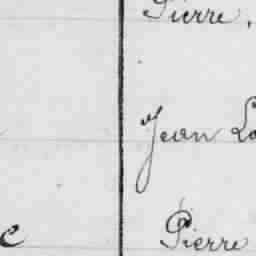 Pierre,
Jean
Pierre